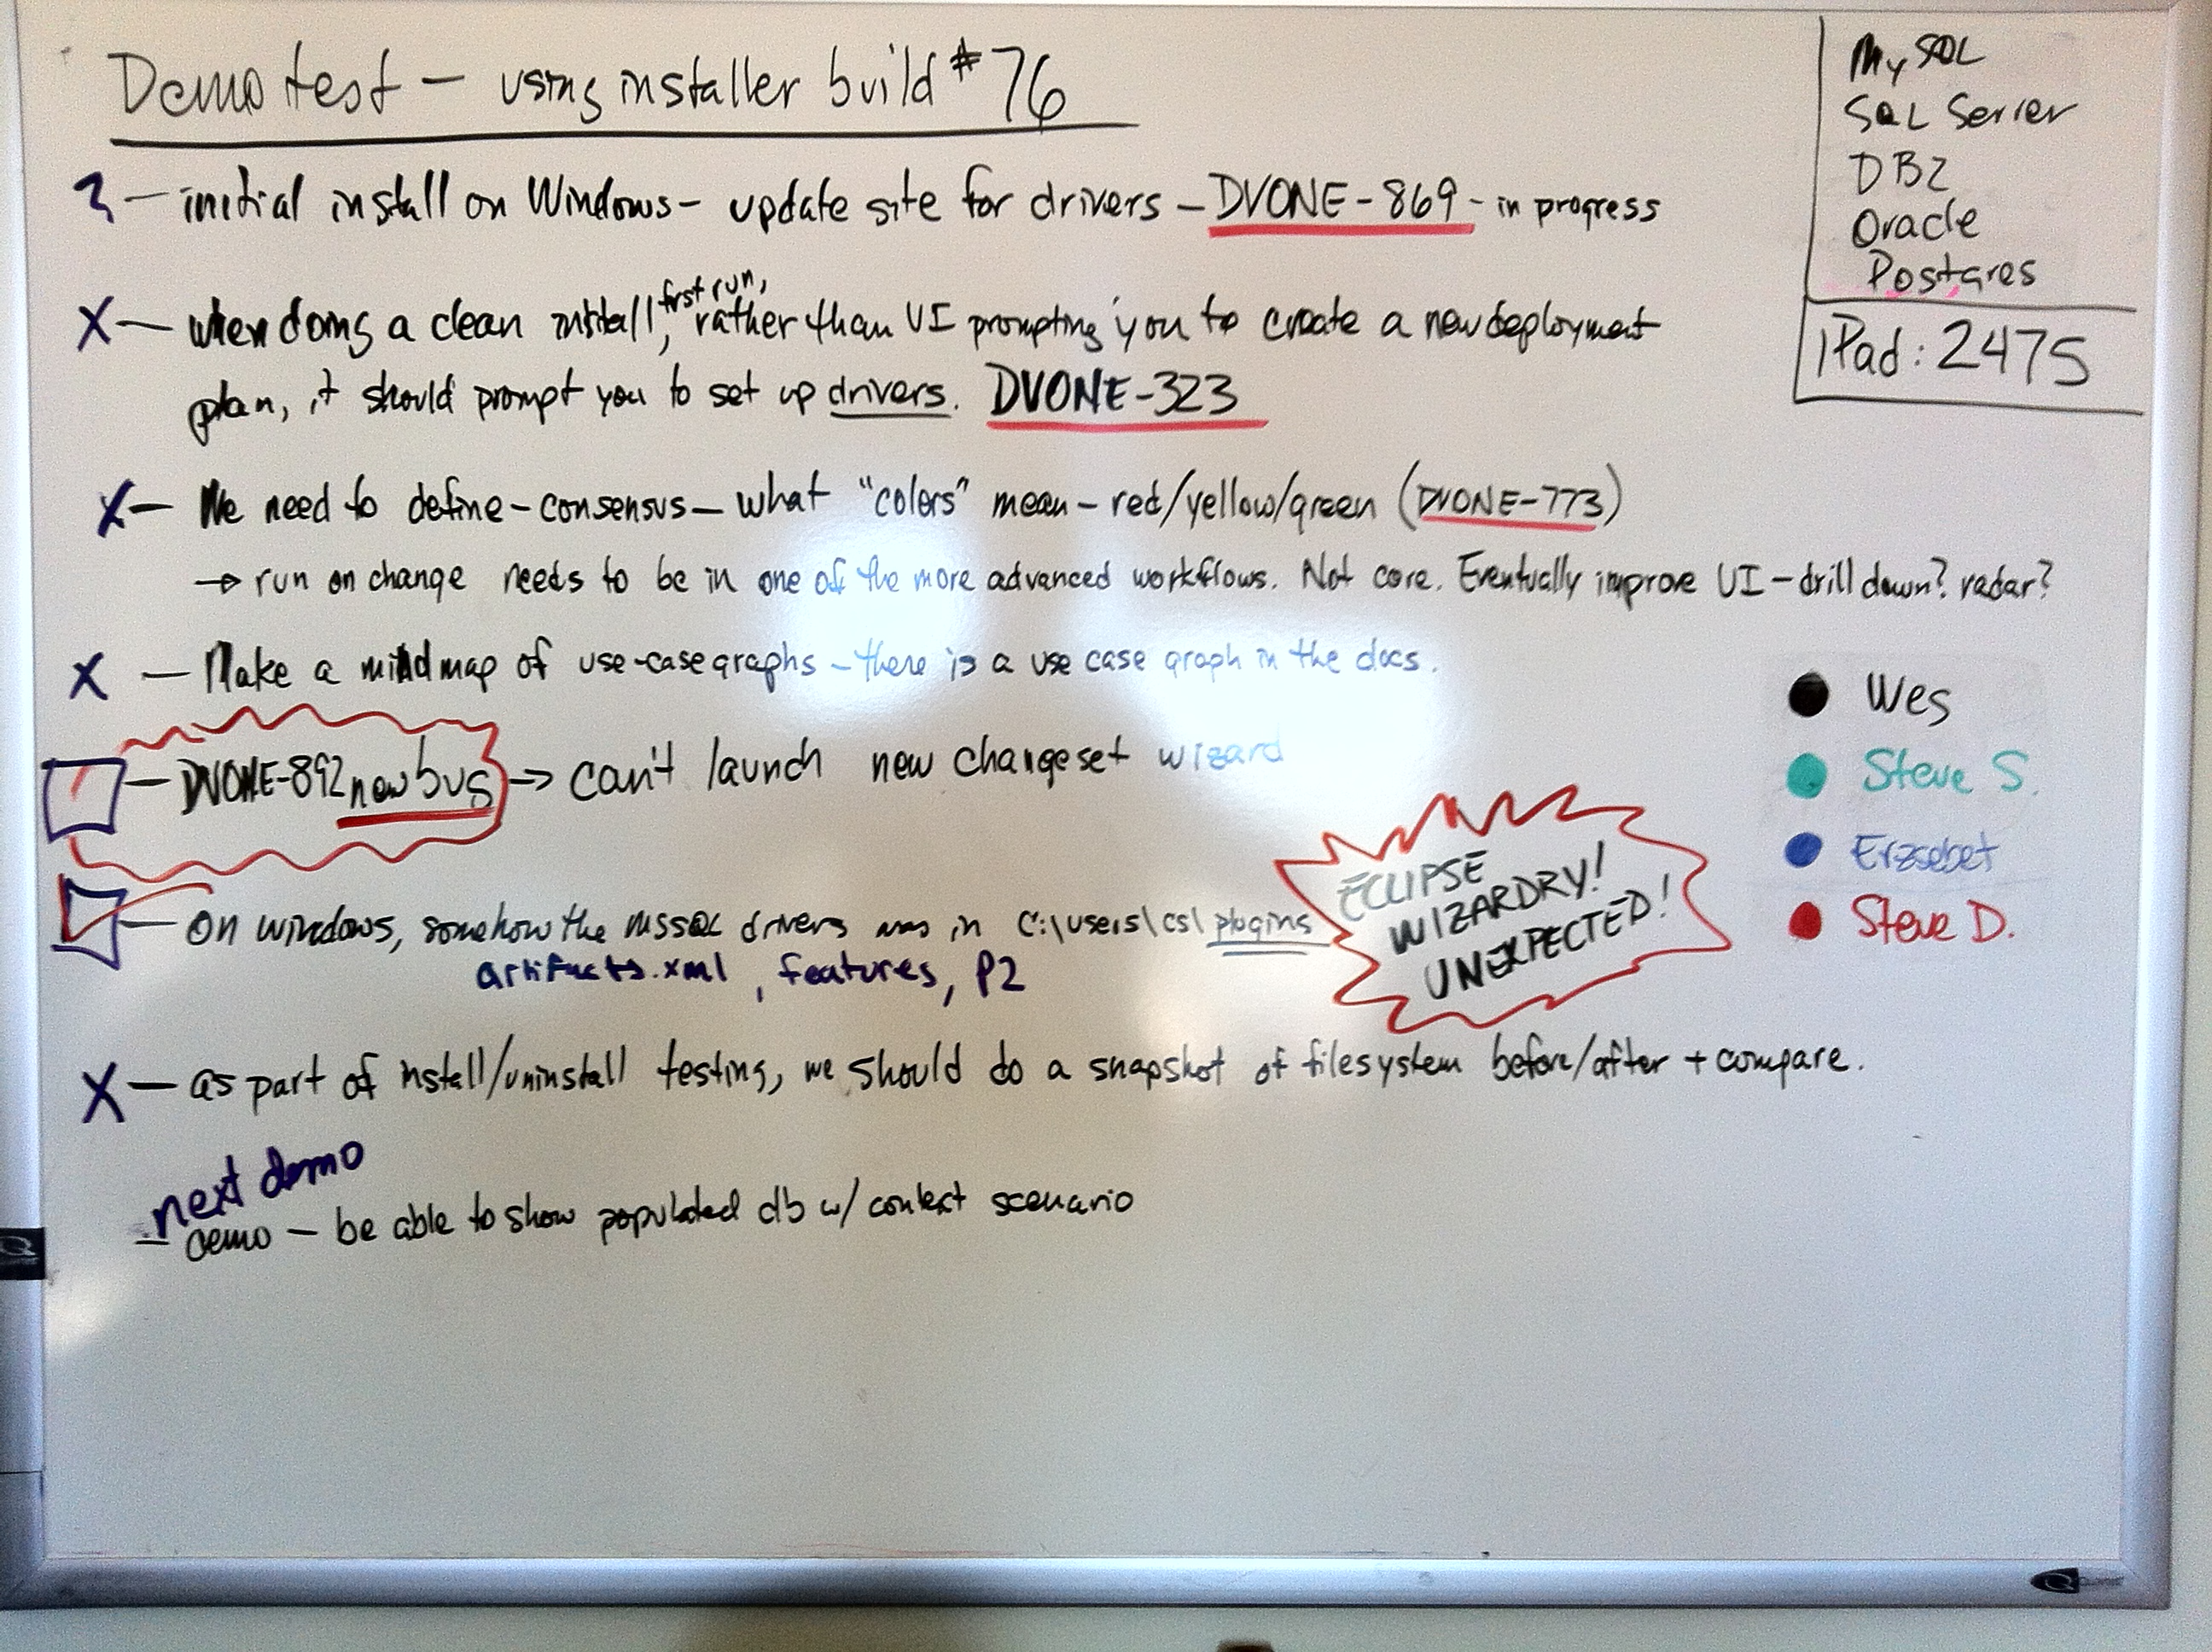 Demo test - using installer build #76
? - initial install on Windows - update site for drivers - DVONE-869 - in progress
X - when doing a clean install, first run, rather than UI prompting you to create a new deployment
plan, it should prompt you to set up drivers. DVONE-323
X - We need to define - consensus - what "colors" mean - red/yellow/green (DVONE-773)
→ run on change needs to be in one of the more advanced workflows. Not core. Eventually improve UI - drill down? radar?
X - Make a mindmap of use-case graphs - there is a use case graph in the docs.
- DVONE-892 new bug → can't launch new changeset wizard
- On windows, somehow the mssql drivers was in C:\users\cs\plugins
artifacts.xml, features, P2
ECLIPSE
WIZARDRY!
UNEXPECTED!
X - as part of install/uninstall testing, we should do a snapshot of filesystem before/after + compare.
next demo
- demo - be able to show populated db w/ context scenario
MySQL
SQL Server
DB2
Oracle
Postgres
iPad: 2475
Wes
Steve S.
Erzsebet
Steve D.